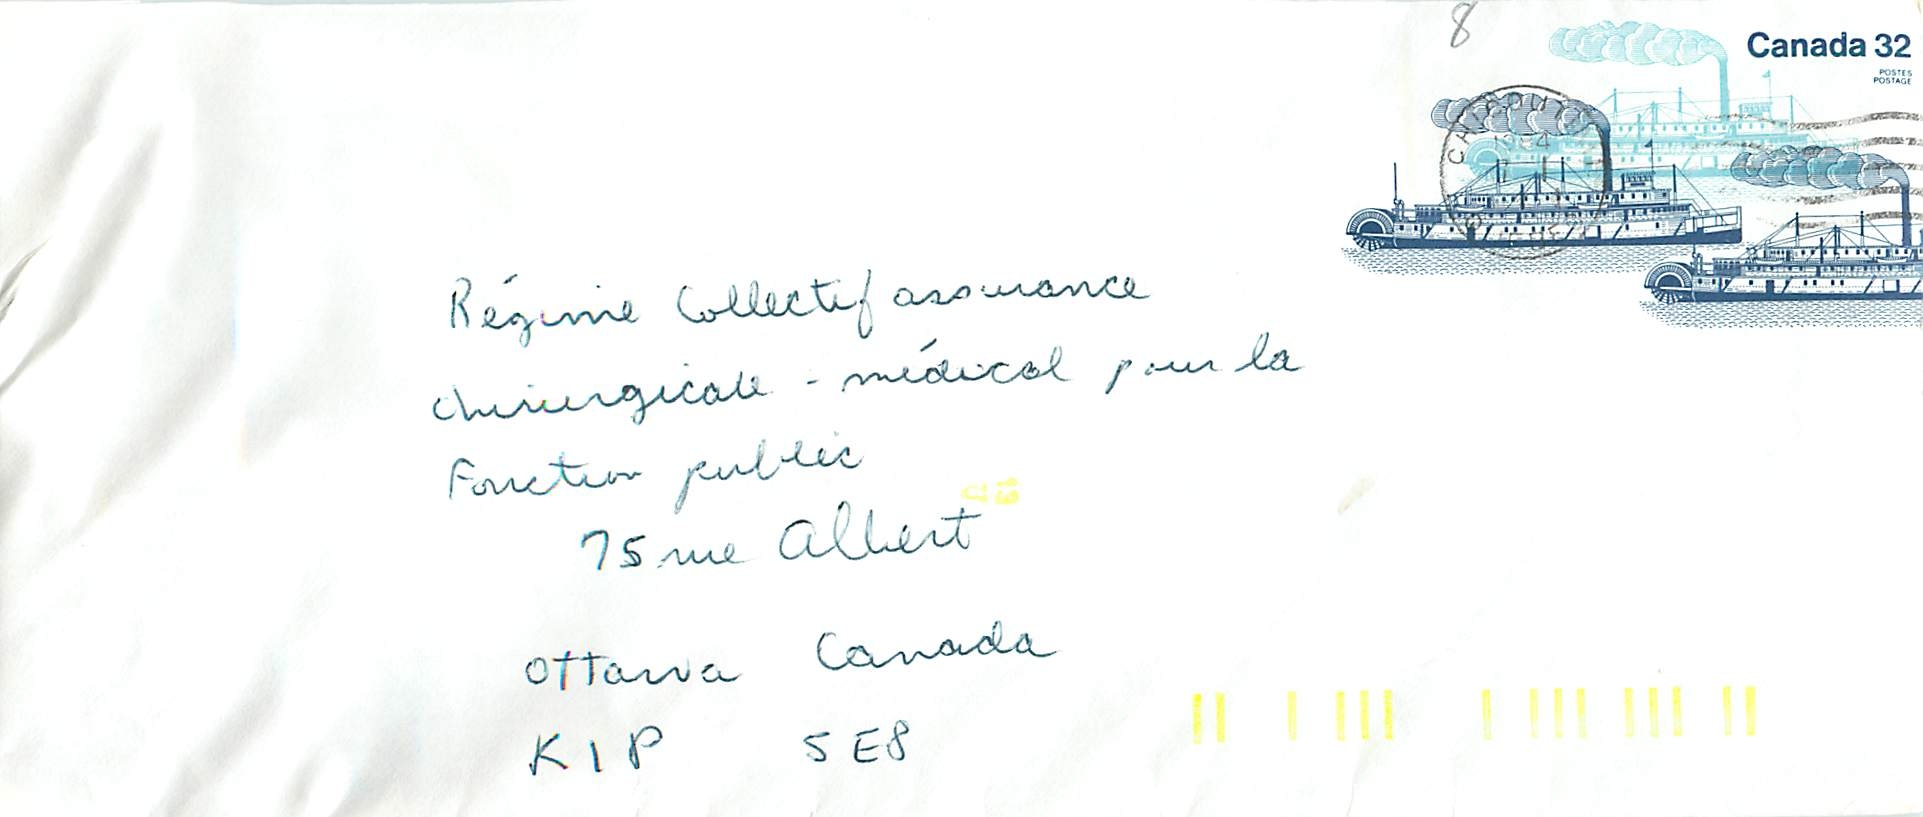 8
Canada 32
POSTES
POSTAGE
1984
Régime Collectif assurance
chirurgicale - médical pour la
Fonction public
75 rue Albert
Ottawa Canada
K1P 5E8